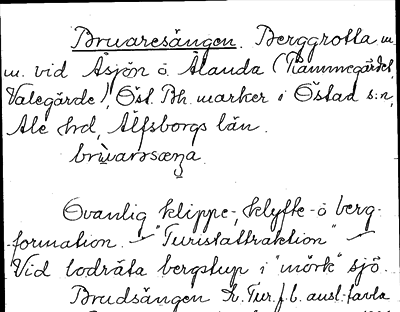 Bruaresängen. Berggrotta m.
m. vid Åsjön ö. Ålanda (Rammegärdet,
Valegärde), Öst. Bh. marker i Östad s:n,
Ale hrd, Älfsborgs län.
brùwarsœŋa
Ovanlig klippe-, klyfte- o berg-
formation. – "Turistattraktion" –
Vid lodräta bergstup i "mörk" sjö.
Brudsängen Sv. Tur. f. b. ausl. tavla